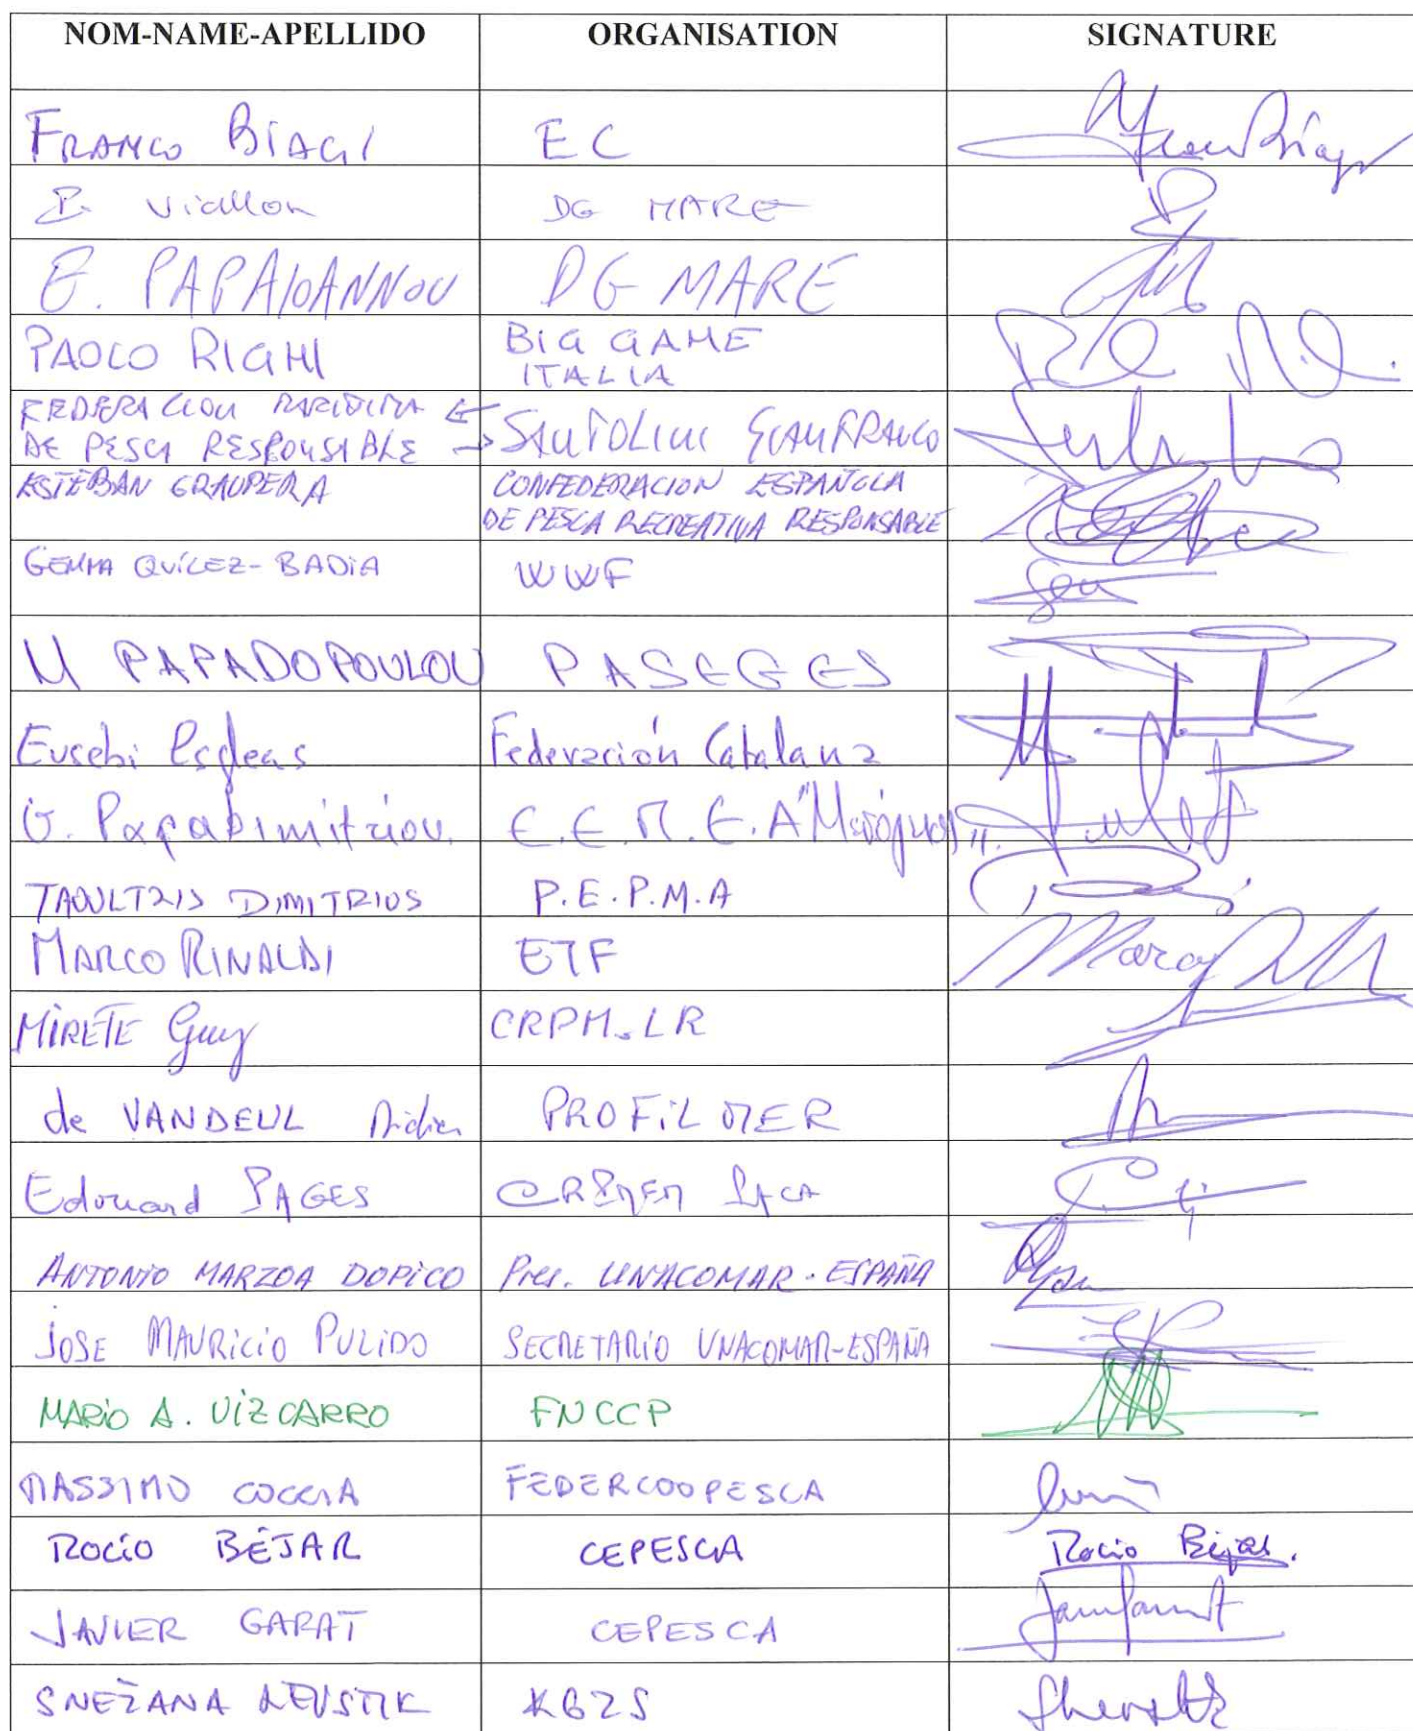 NOM-NAME-APELLIDO ORGANISATION SIGNATURE
FRANCO BIAGI EC Franco Biagi
P. Viallon DG MARE
E. PAPAIOANNOU DG MARE
PAOLO RIGHI BIG GAME
ITALIA
DE PESCA RESPONSIBLE → SANTOLINI GIANFRANCO
ESTEBAN GRAUPERA CONFEDERACION ESPAÑOLA
DE PESCA RECREATIVA RESPONSABLE
GEMMA QUÍLEZ-BADIA WWF
M PAPADOPOULOU PASEGES
Eusebi Esgleas Federación Catalana
G. Papadimitriou
TAOULTZIS DIMITRIOS P.E.P.M.A
MARCO RINALDI ETF Marco
MIRETE Guy CRPM.LR
de VANDEUL Didier PROFIL MER
Edouard PAGES CRPMEM PACA
ANTONIO MARZOA DOPICO Pres. UNACOMAR-ESPAÑA
JOSE MAURICIO PULIDO SECRETARIO UNACOMAR-ESPAÑA
MARIO A. VIZCARRO FNCCP
MASSIMO COCCIA FEDERCOOPESCA
ROCÍO BÉJAR CEPESCA Rocío Béjar.
JAVIER GARAT CEPESCA
SNEŽANA LEVSTIK KGZS